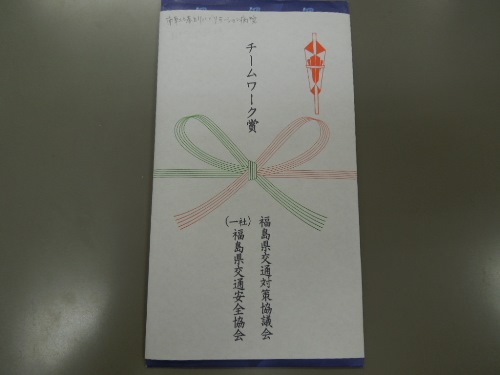 チームワーク賞
福島県交通対策協議会
(一社)福島県交通安全協会